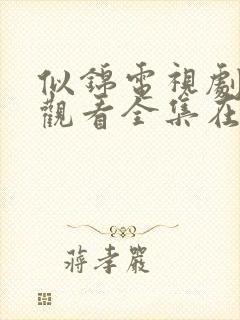 似錦電視劇
觀看全集在
蔣孝嚴